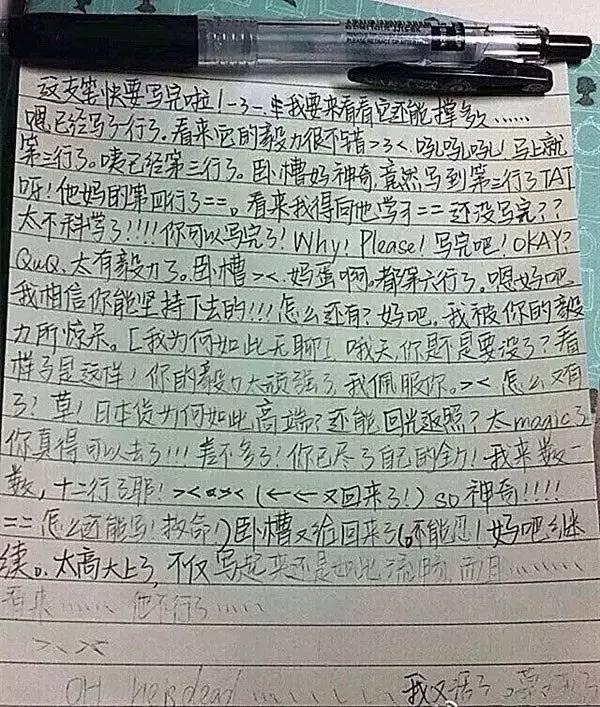 这支笔快要写完啦!-3-.我要来看看它还能撑多久……
嗯已经写了一行了。看来它的毅力很不错>3<.吼吼吼!马上就
第三行了。咦已经第三行了。卧槽好神奇.竟然写到第三行了TAT
呀!他妈的第四行了==。看来我得向他学习==还没写完??
太不科学了!!!!你可以写完了!Why!Please!写完吧!OKAY?
QuQ.太有毅力了。卧槽><.妈蛋啊。都第六行了。嗯好吧
我相信你能坚持下去的!!!怎么还有?好吧.我被你的毅
力所惊呆。[我为何如此无聊] 哦天,你是不是要没了?看
样子是这样!你的毅力太顽强了,我佩服你。>< 怎么又有
了?草!日本货为何如此高端?还能回光返照?太magic了
你真得可以去了!!!差不多了!你已尽了自己的全力!我来数一
数,十二行了耶!><(←←又回来了!)so神奇!!!!
==怎么还能写!救命!)卧槽又给回来了(不能忍!好吧继
续。太高大上了,不仅写起来还是如此流畅,而且………
看来…… 他不行了……
>、><
OH he is dead ……… 我又活了